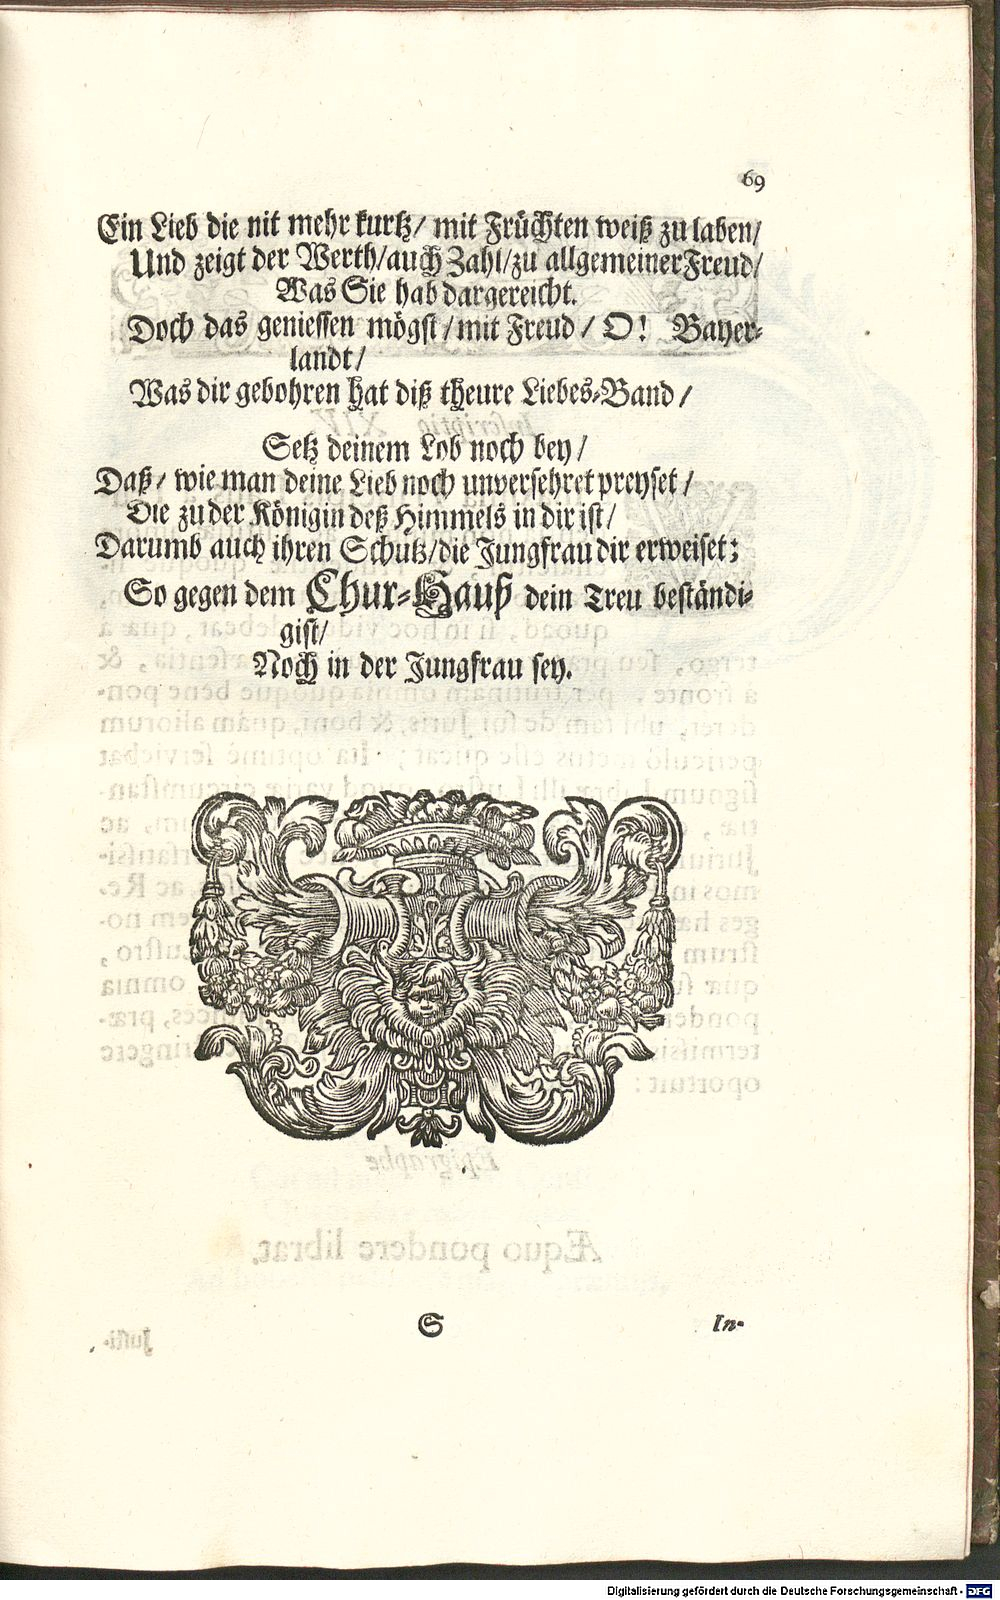 69
Ein Lieb die nit mehr kurtz/ mit Früchten weiß zu laben/
Und zeigt der Werth/auch Zahl/zu allgemeiner Freud/
Was Sie hab dargereicht.
Doch das geniessen mögst/mit Freud/ O! Bayer-
landt/
Was dir gebohren hat diß theure Liebes-Band/
Setz deinem Lob noch bey/
Daß/ wie man deine Lieb noch unversehret preyset/
Die zu der Königin deß Himmels in dir ist/
Darumb auch ihren Schutz/die Jungfrau dir erweiset;
So gegen dem Chur-Hauß dein Treu beständi-
gist/
Noch in der Jungfrau sey.
S
In-
Digitalisierung gefördert durch die Deutsche Forschungsgemeinschaft - DFG